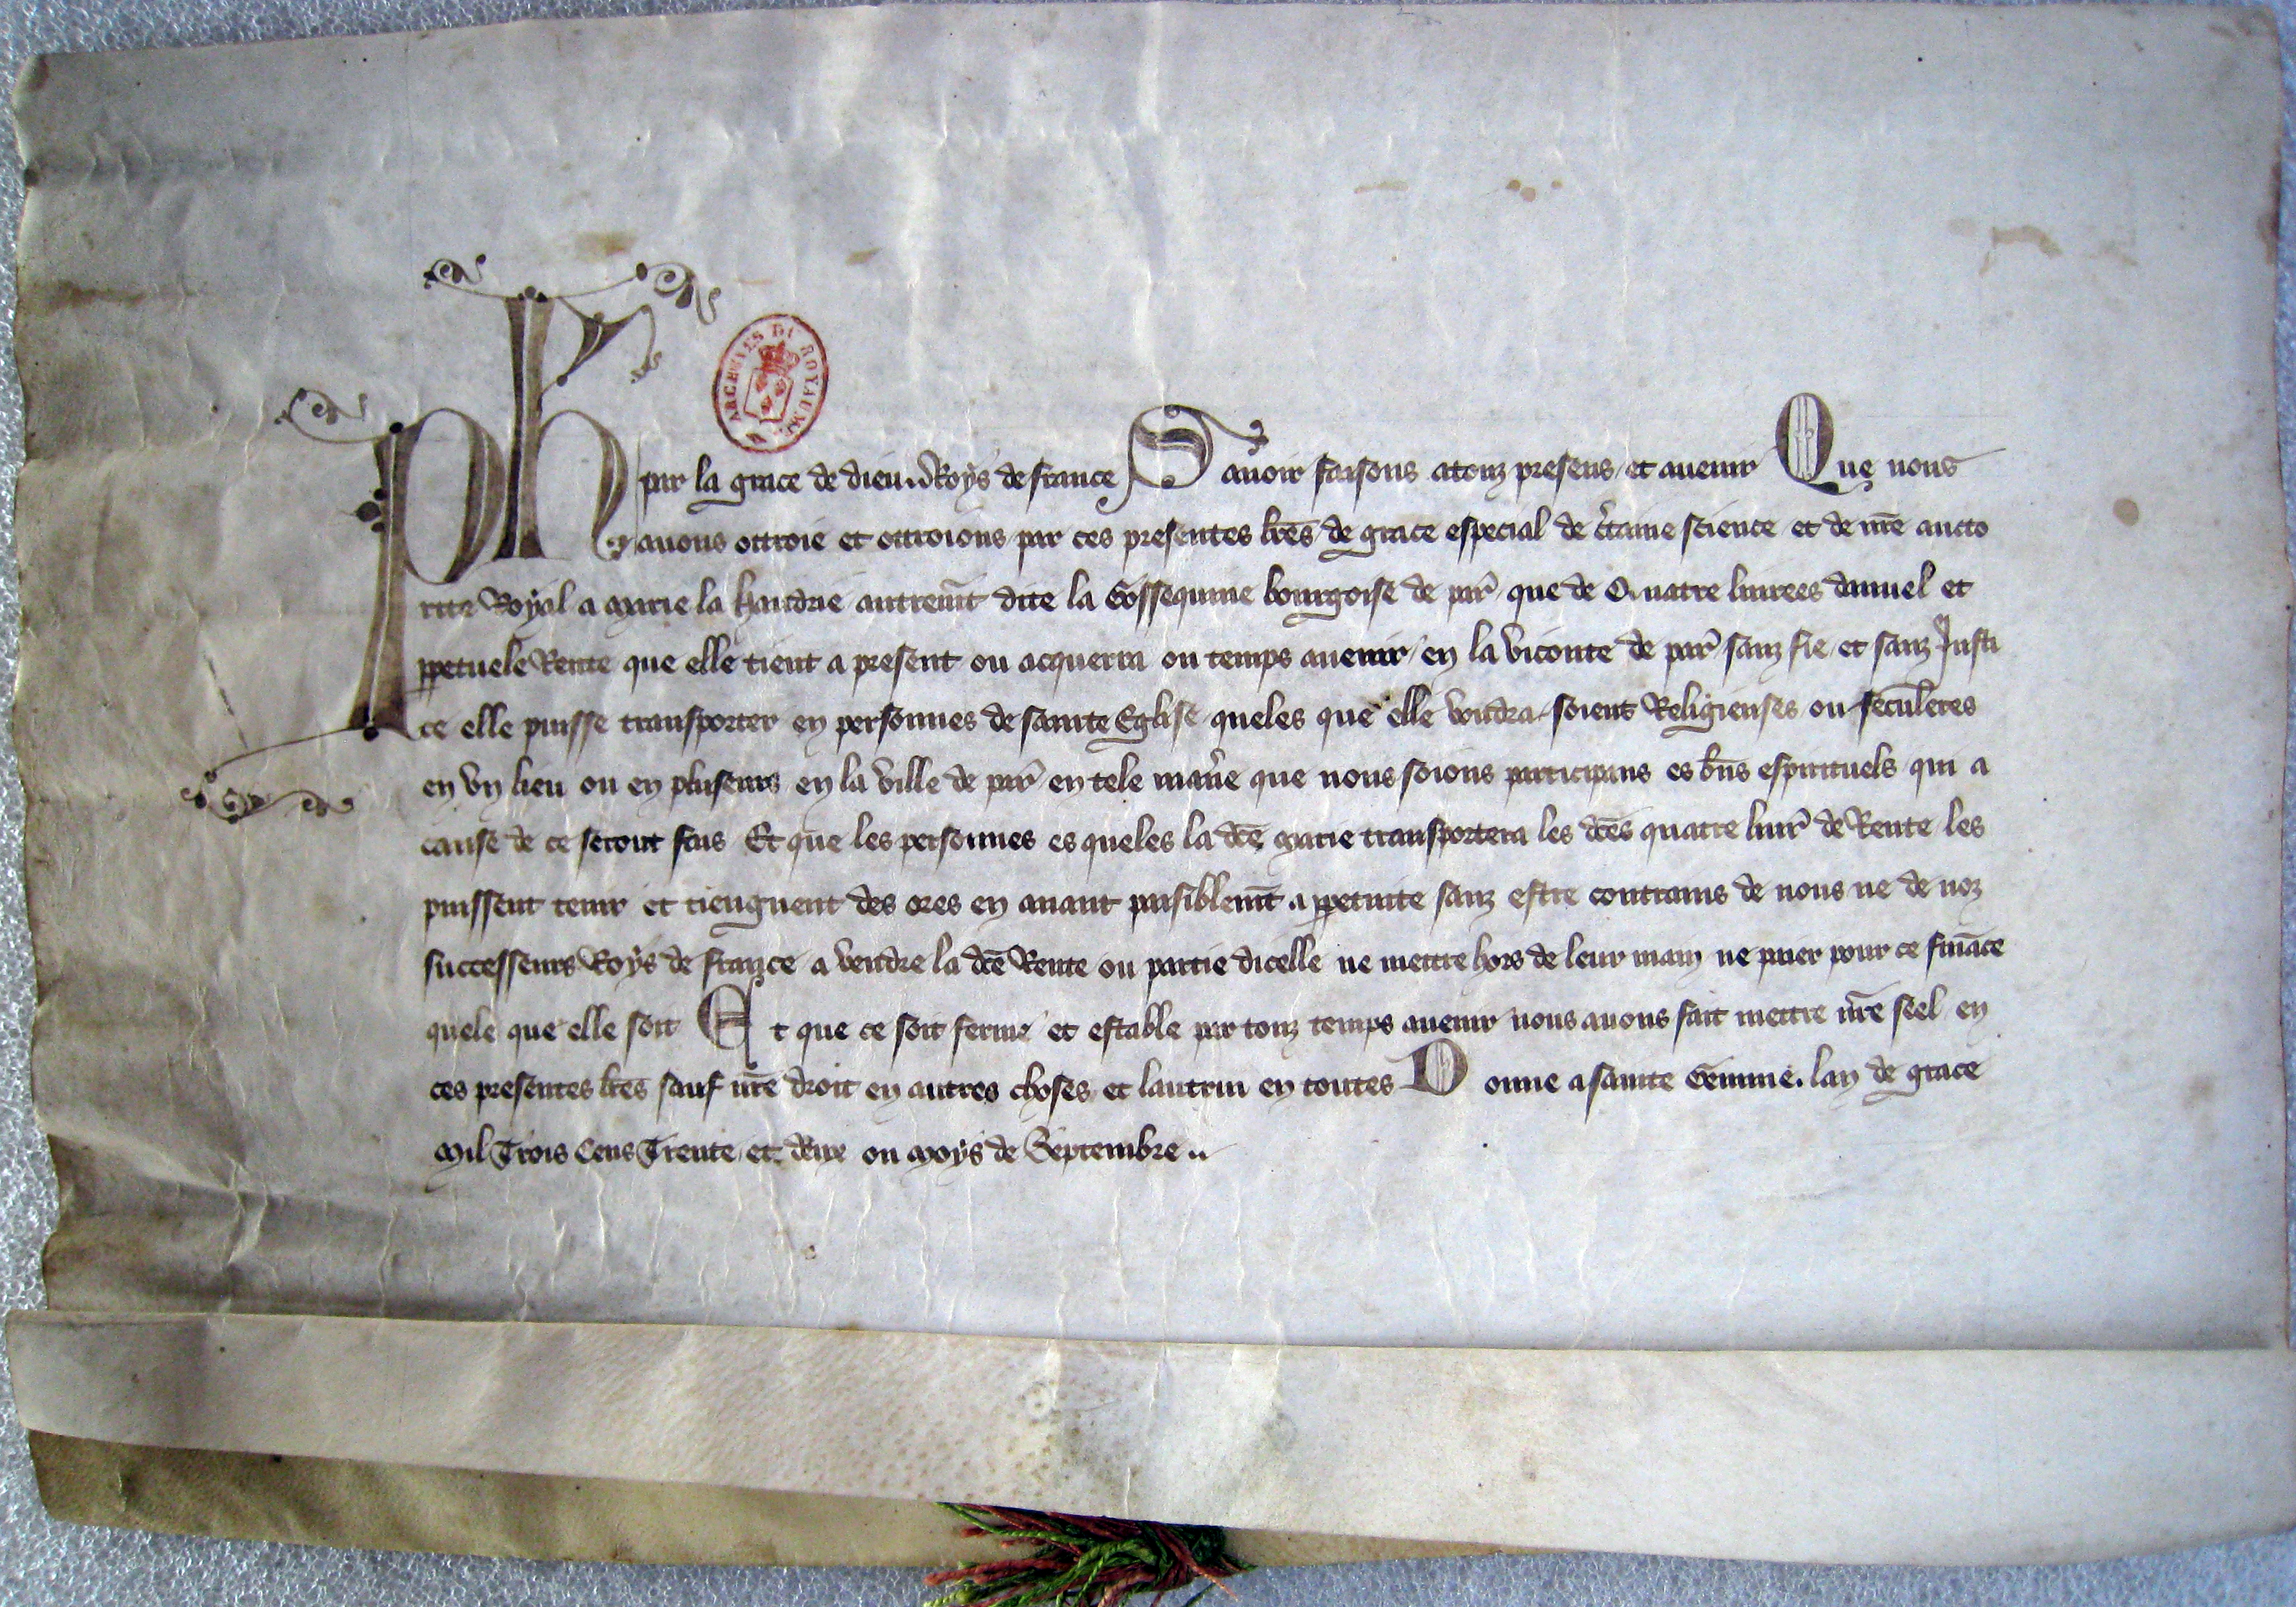 ARCHIVES DU ROYAUME
Ph par la grace de dieu Roys de france Savoir faisons a touz presens et avenir Que nous
avons ottroie et ottroions par ces presentes lrēs de grace especial de c'taine science et de nrē aucto
rite Royal a Marie la Haudrie autremt̄ dite la Gossequine bourgoise de par' que de Quatre livrees damuel et
ppetuele Rente que elle tient a present ou acquerra ou temps avenir en la viconte de par' sanz fie et sanz Justi
ce elle puisse transporter en personnes de sainte Eglise queles que elle voudra soient Religieuses ou seculeres
en vn lieu ou en pluseurs en la ville de par' en tele mani'e que nous soions participans es bn̄s espirituels qui a
cause de ce seront fais Et que les personnes es queles la dcē Marie transportera les dcēs quatre livr' de Rente les
puissent tenir et tiengnent des ores en avant paisiblemt̄ a ppetuite sanz estre contrains de nous ne de noz
successeurs Roys de france a vendre la dcē Rente ou partie dicelle ne mettre hors de leur main ne paier pour ce fināce
quele que elle soit Et que ce soit ferme et estable par touz temps avenir nous avons fait mettre nrē seel en
ces presentes lrēs sauf nrē droit en autres choses et lautrui en toutes Donne a sainte Gemme. lan de grace
Mil Trois Cens Trente et deux ou Moys de Septembre ..